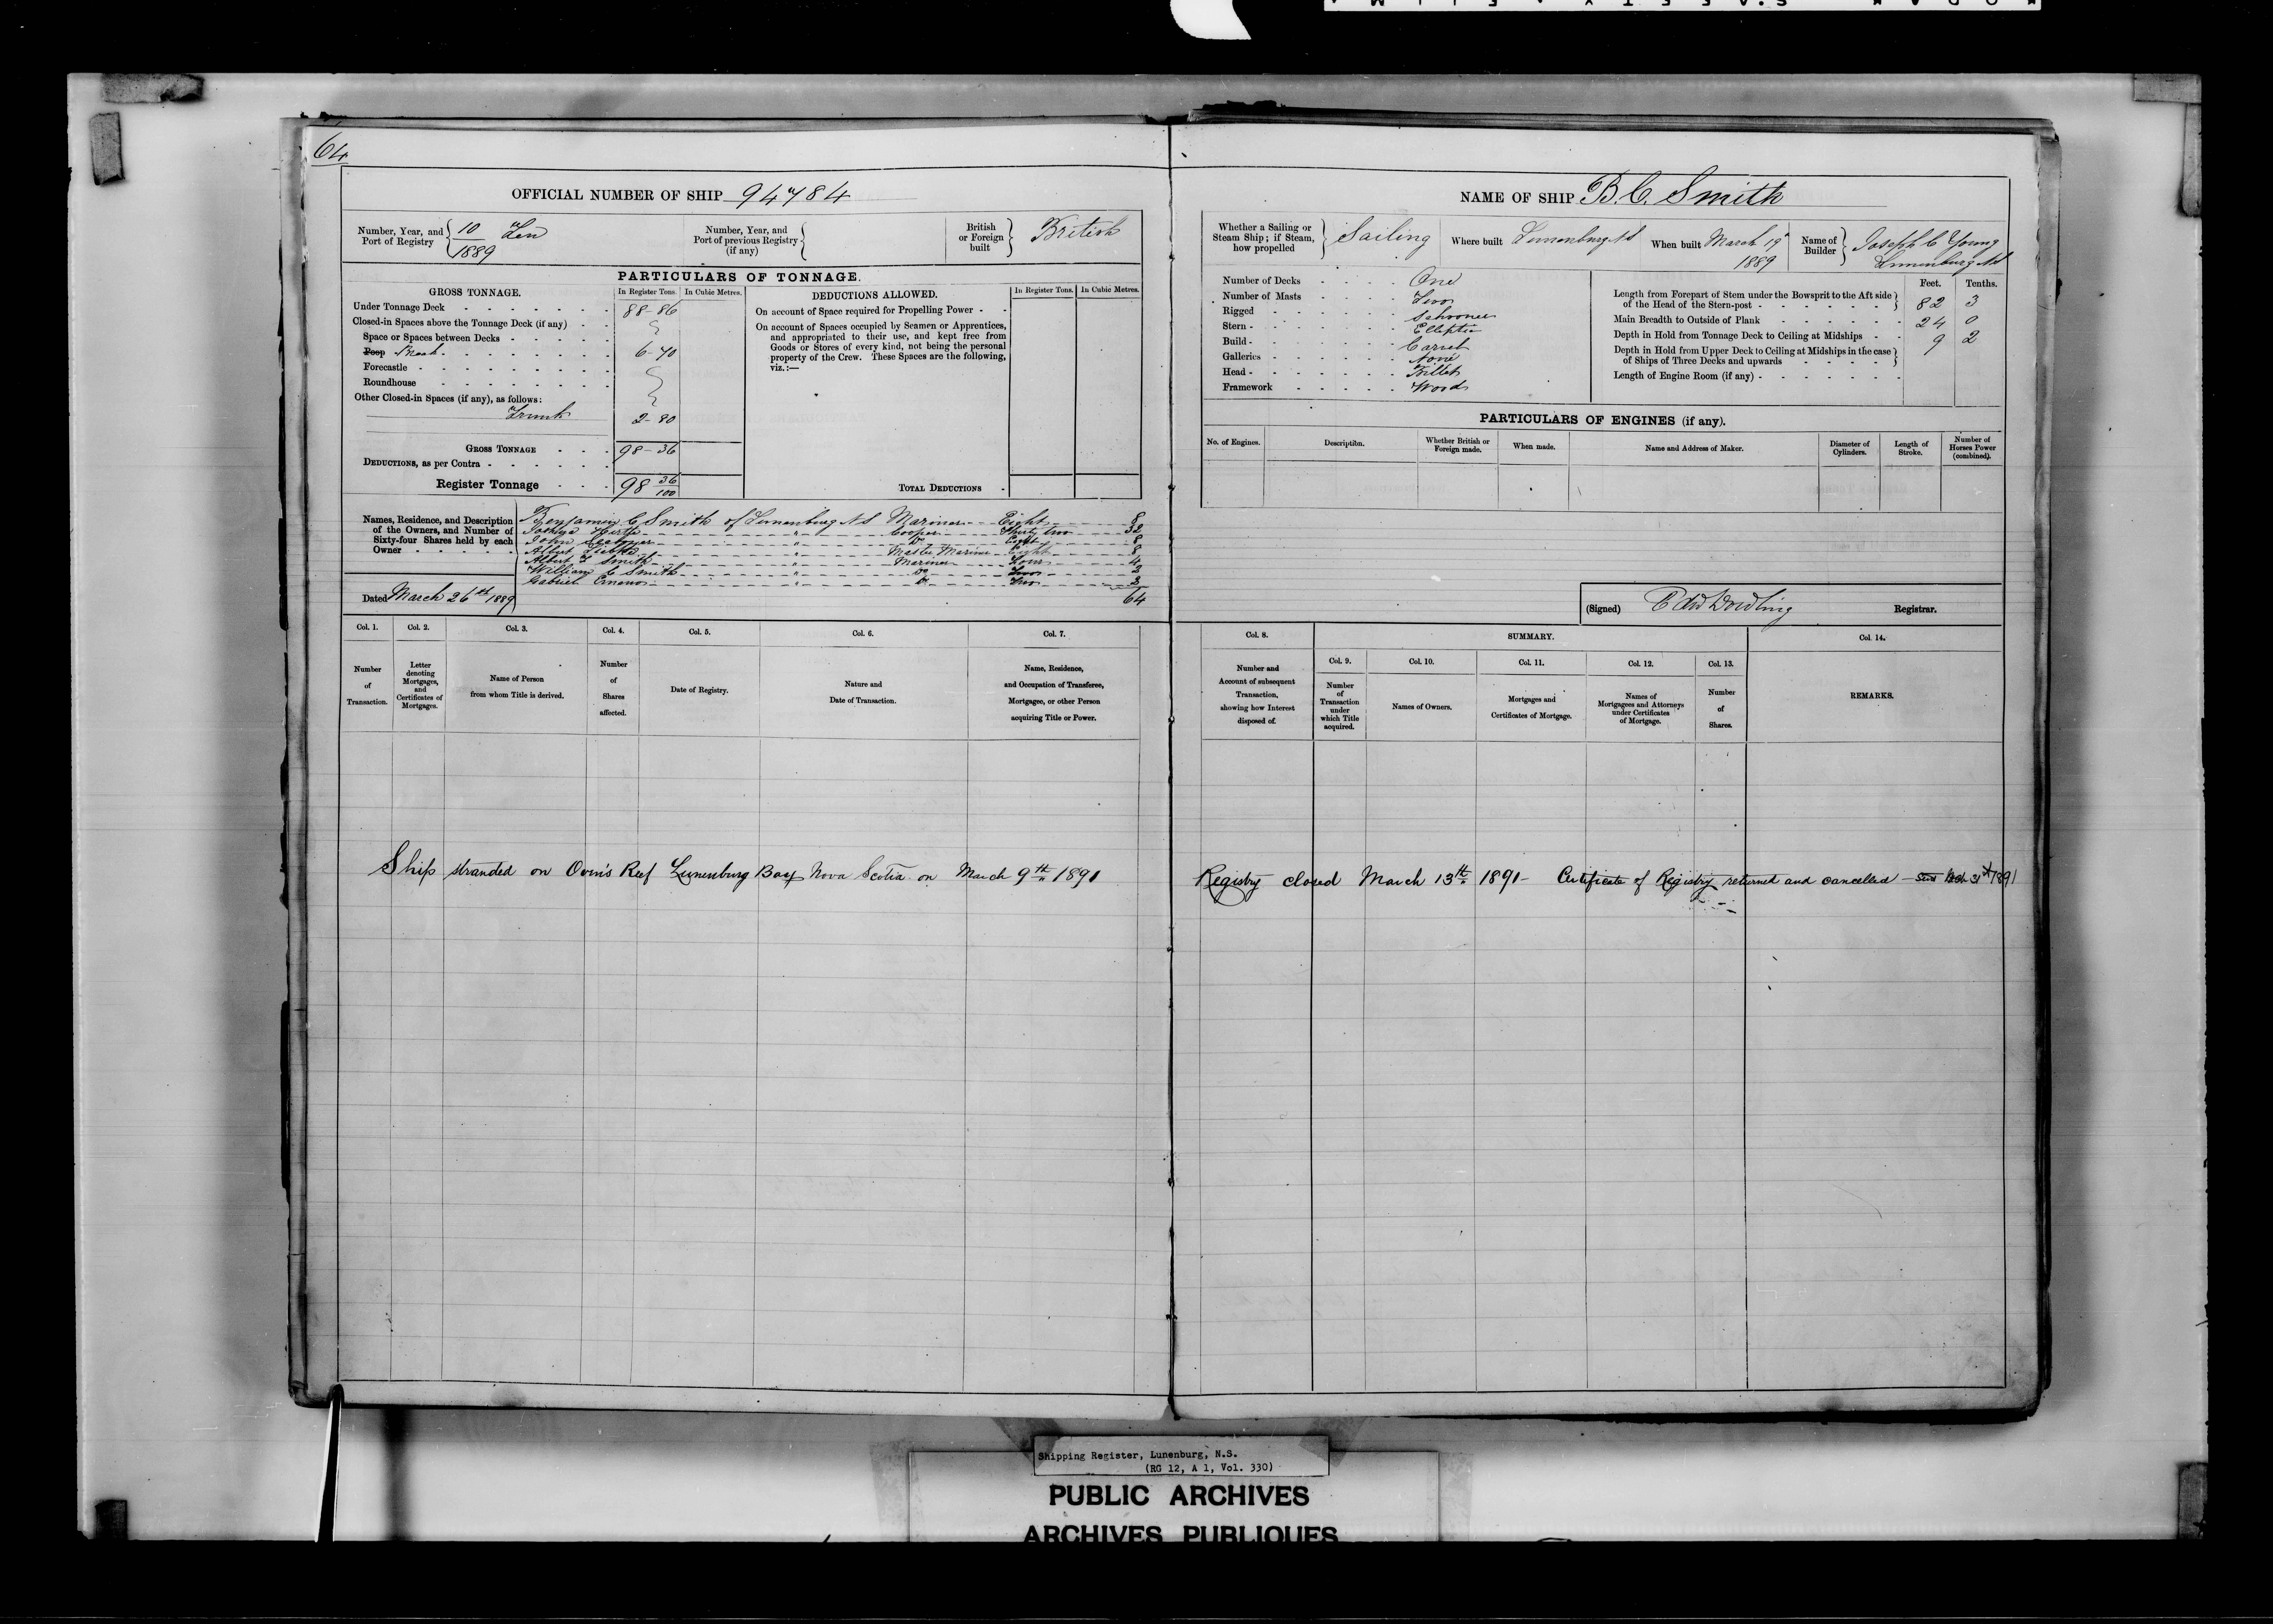 64
OFFICIAL NUMBER OF SHIP 94784
Number, Year, and Port of Registry { 10 Ten 1889
Number, Year, and Port of previous Registry (if any) {
British or Foreign built } British
PARTICULARS OF TONNAGE.
GROSS TONNAGE.
In Register Tons. In Cubic Metres.
Under Tonnage Deck 88-86
Closed-in Spaces above the Tonnage Deck (if any)
Space or Spaces between Decks
Poop Break 6-70
Forecastle
Roundhouse
Other Closed-in Spaces (if any), as follows:
Trunk 2-80
GROSS TONNAGE 98-36
DEDUCTIONS, as per Contra
Register Tonnage 98 36/100
DEDUCTIONS ALLOWED.
In Register Tons. In Cubic Metres.
On account of Space required for Propelling Power
On account of Spaces occupied by Seamen or Apprentices,
and appropriated to their use, and kept free from
Goods or Stores of every kind, not being the personal
property of the Crew. These Spaces are the following,
viz.:—
TOTAL DEDUCTIONS
Names, Residence, and Description of the Owners, and Number of Sixty-four Shares held by each Owner
Benjamin C Smith of Lunenburg NS Mariner Eight 8
Joshua Hirtle " Cooper Thirty two 32
John " Do Eight 8
Albert " Master Mariner Eight 8
Albert F Smith " Mariner Four 4
William C Smith " Do Two 2
Gabriel " Do Two 2
64
Dated March 26th 1889
Col. 1. Col. 2. Col. 3. Col. 4. Col. 5. Col. 6. Col. 7.
Number of Transaction.
Letter denoting Mortgages, and Certificates of Mortgages.
Name of Person from whom Title is derived.
Number of Shares affected.
Date of Registry.
Nature and Date of Transaction.
Name, Residence, and Occupation of Transferee, Mortgagee, or other Person acquiring Title or Power.
Ship stranded on Ovin's Reef Lunenburg Bay Nova Scotia on March 9th 1891
NAME OF SHIP B.C. Smith
Whether a Sailing or Steam Ship; if Steam, how propelled } Sailing
Where built Lunenburg NS
When built March 19th 1889
Name of Builder } Joseph C Young Lunenburg NS
Number of Decks One
Number of Masts Two
Rigged Schooner
Stern Elliptic
Build Carvel
Galleries None
Head Billet
Framework Wood
Feet. Tenths.
Length from Forepart of Stem under the Bowsprit to the Aft side of the Head of the Stern-post 82 3
Main Breadth to Outside of Plank 24 0
Depth in Hold from Tonnage Deck to Ceiling at Midships 9 2
Depth in Hold from Upper Deck to Ceiling at Midships in the case of Ships of Three Decks and upwards
Length of Engine Room (if any)
PARTICULARS OF ENGINES (if any).
No. of Engines. Description. Whether British or Foreign made. When made. Name and Address of Maker. Diameter of Cylinders. Length of Stroke. Number of Horses Power (combined).
(Signed) Edw Dowling Registrar.
Col. 8. SUMMARY. Col. 14.
Col. 9. Col. 10. Col. 11. Col. 12. Col. 13.
Number and Account of subsequent Transaction, showing how Interest disposed of.
Number of Transaction under which Title acquired.
Names of Owners.
Mortgages and Certificates of Mortgage.
Names of Mortgagees and Attorneys under Certificates of Mortgage.
Number of Shares.
REMARKS.
Registry closed March 13th 1891 - Certificate of Registry returned and cancelled March 31st 1891
Shipping Register, Lunenburg, N.S.
(RG 12, A 1, Vol. 330)
PUBLIC ARCHIVES
ARCHIVES PUBLIQUES